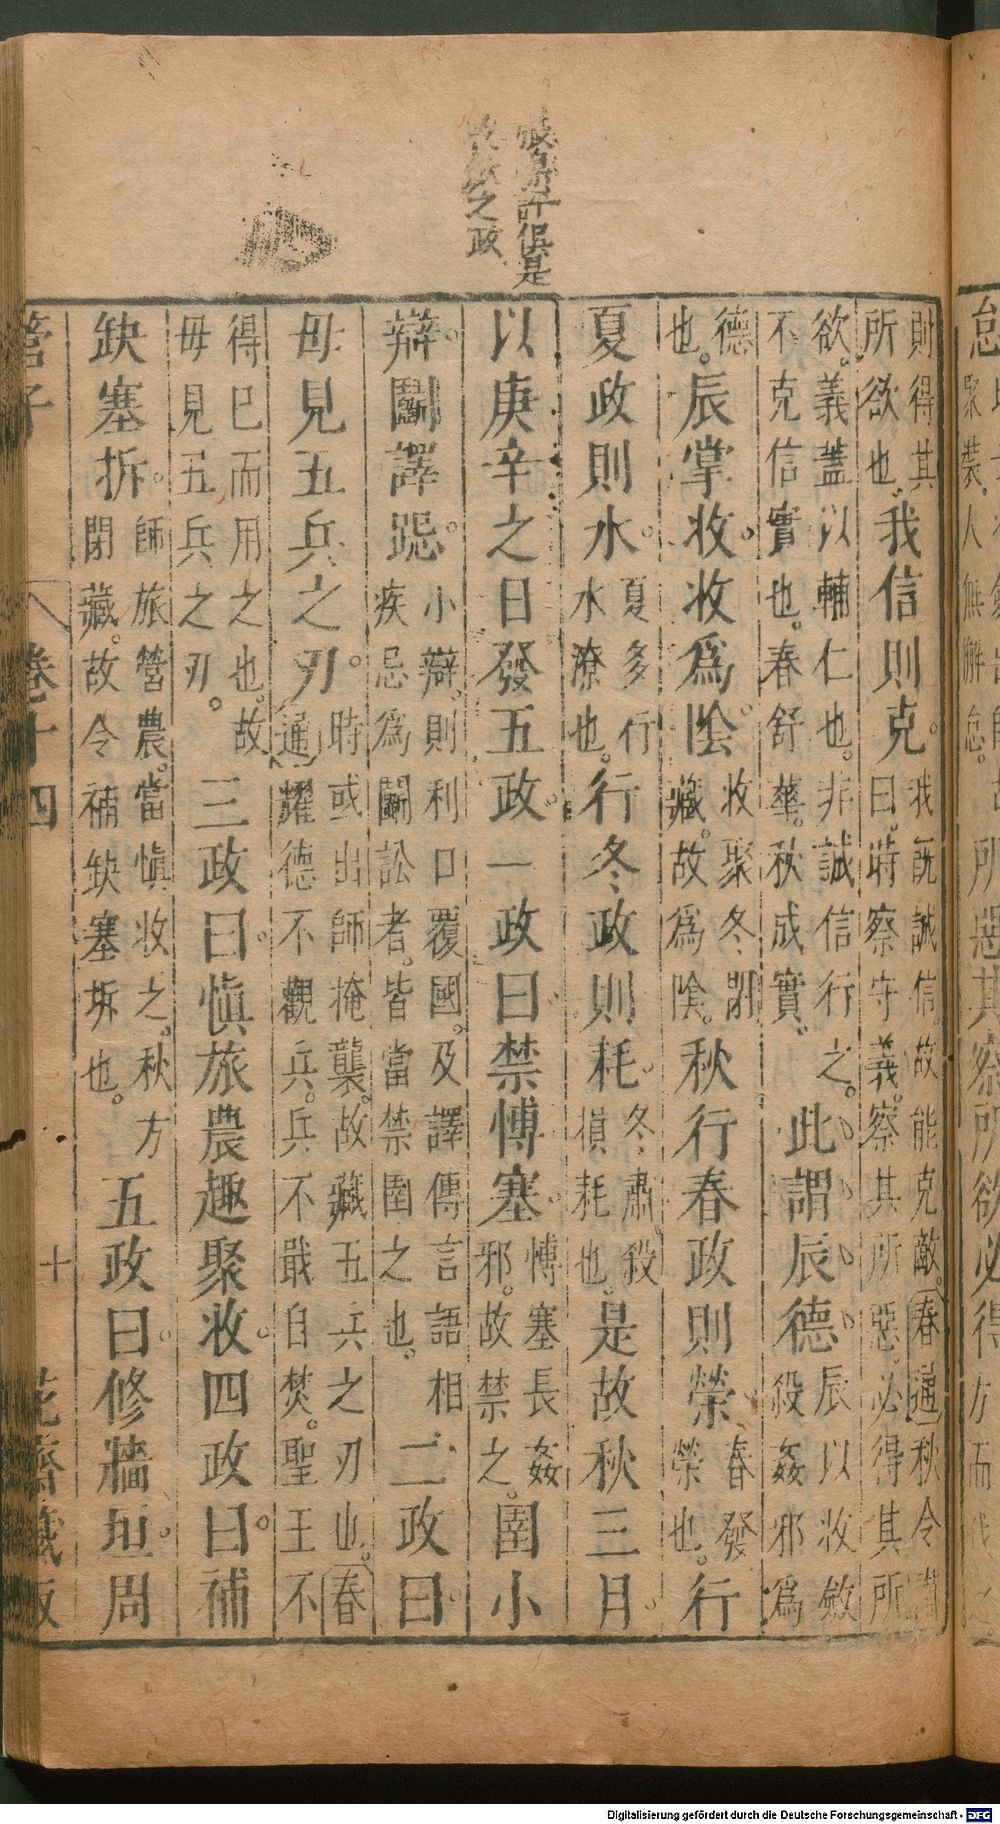 是
之政
則得其
所欲也。
我信則克。
我既誠信。故能克敵。春通秋令
曰。時察守義。察其所惡。必得其所
欲。義蓋以輔仁也。非誠信行之。
不克信實也。春舒華。秋成實。
此謂辰德。
辰以收斂
殺姦邪爲
德
也。
辰掌收。收爲陰。
收聚冬閉
藏。故爲陰。
秋行春政則榮。
春發
榮也。
行
夏政則水。
夏多行
水潦也。
行冬政則耗。
冬肅殺
損耗也。
是故秋三月。
以庚辛之日發五政。一政曰。禁愽塞。
愽塞長姦
邪。故禁之。
圉小
辯。鬭譯跽。
小辯。則利口覆國。及譯傳言語相
疾忌爲鬭訟者。皆當禁圉之也。
二政曰。
毋見五兵之刃。
時或出師掩襲。故藏五兵之刃也。春
通耀德不觀兵。兵不戢自焚。聖王不
得已而用之也。故
毋見五兵之刃。
三政曰。愼旅農趣聚收。四政曰。補
缺塞拆。
師旅營農。當愼收之。秋方
閉藏。故令補缺塞坼也。
五政曰。修牆垣。周
管子 卷十四 十 花齋藏版
所惡其察所欲必得
Digitalisierung gefördert durch die Deutsche Forschungsgemeinschaft - DFG